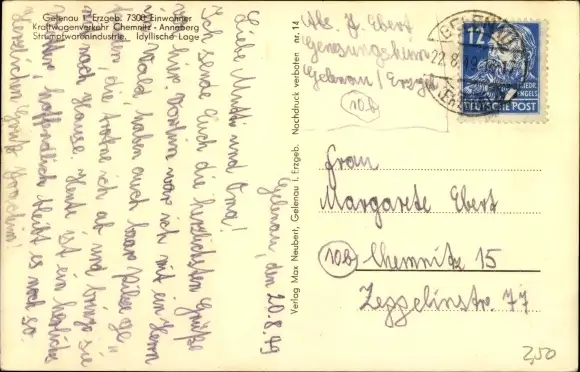 Gelenau i. Erzgeb. 7300 Einwohner
Kraftwagenverkehr Chemnitz - Annaberg
Strumpfwarenindustrie. Idyllische Lage
Gelenau, den 20.8.49
Liebe Mutti und Oma!
Ich sende Euch die herzlichsten Grüße
von hier. Vorhin war ich mit ein Herrn
im Wald, haben auch paar Pilze ge=
die trockne ich ab und bringe sie
mit nach Hause. Heute ist ein herrliches
hoffentlich bleibt es noch so.
Herzlichen Gruß Joachim!
Verlag Max Neubert, Gelenau i. Erzgeb. Nachdruck verboten nr. 14
Abs. J. Ebert
Genesungsheim
Gelenau / Erzgeb.
10b
GELENAU
22.8.49
12
FRIEDR. ENGELS
DEUTSCHE POST
Frau
Margarete Ebert
10b Chemnitz 15
Zeppelinstr. 77
2,50